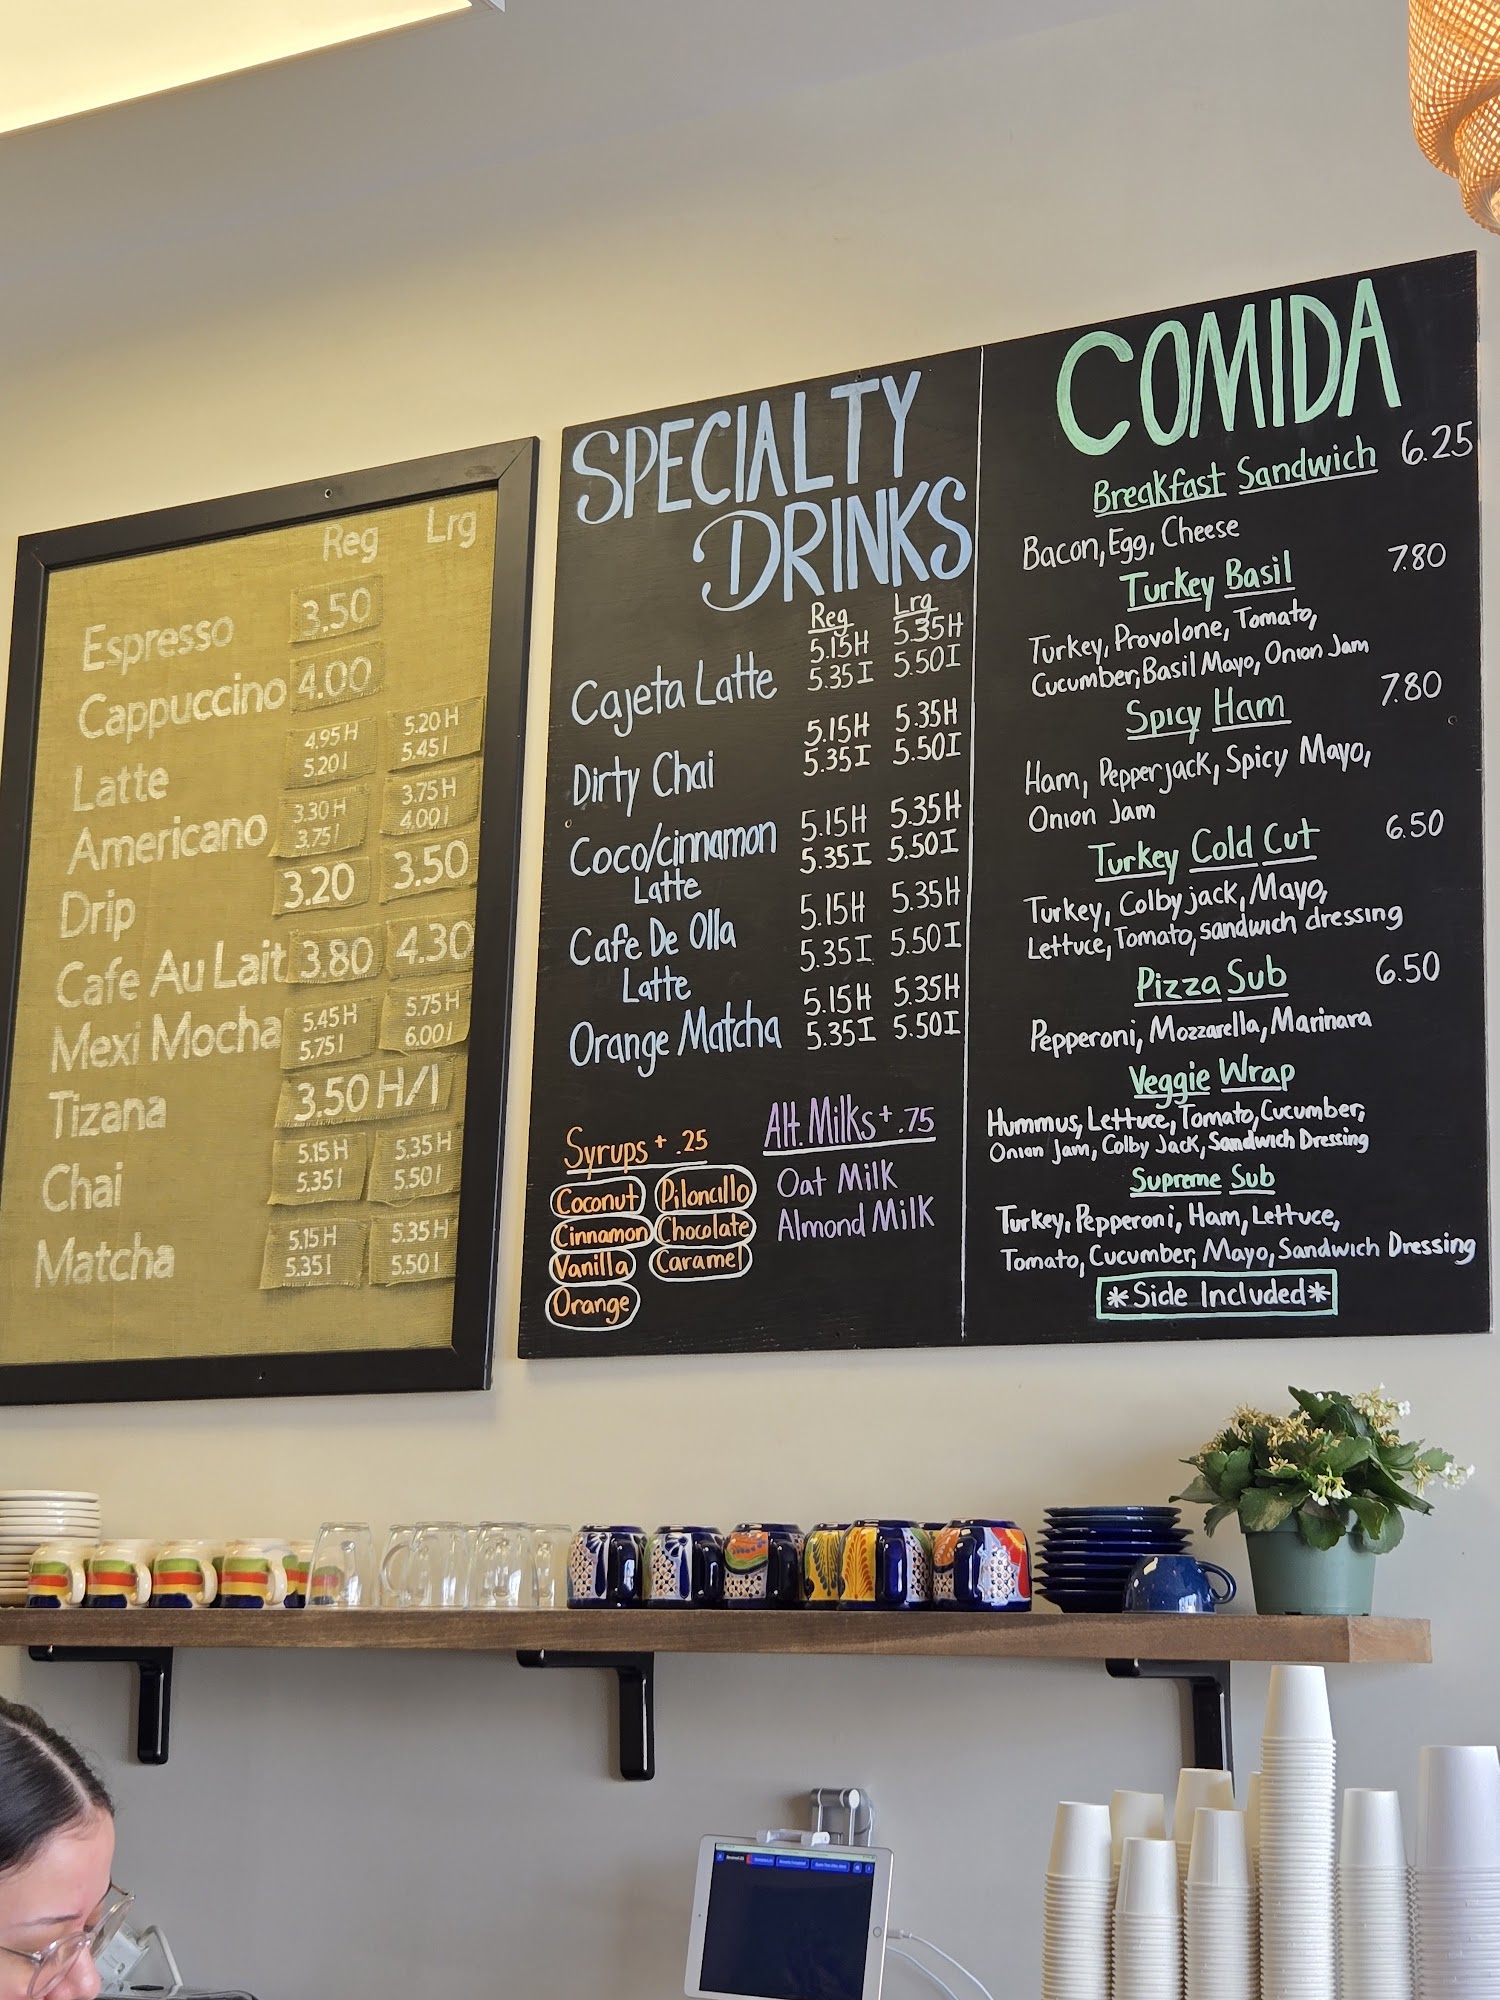 Reg Lrg
Espresso 3.50
Cappuccino 4.00
4.95 H 5.20 H
Latte 5.20 I 5.45 I
3.30 H 3.75 H
Americano 3.75 I 4.00 I
Drip 3.20 3.50
Cafe Au Lait 3.80 4.30
5.45 H 5.75 H
Mexi Mocha 5.75 I 6.00 I
Tizana 3.50 H/I
5.15 H 5.35 H
Chai 5.35 I 5.50 I
5.15 H 5.35 H
Matcha 5.35 I 5.50 I
SPECIALTY
DRINKS
Reg Lrg
5.15H 5.35H
Cajeta Latte 5.35I 5.50I
5.15H 5.35H
Dirty Chai 5.35I 5.50I
Coco/cinnamon 5.15H 5.35H
Latte 5.35I 5.50I
Cafe De Olla 5.15H 5.35H
Latte 5.35I 5.50I
5.15H 5.35H
Orange Matcha 5.35I 5.50I
Syrups + .25
Coconut Piloncillo
Cinnamon Chocolate
Vanilla Caramel
Orange
Alt. Milks + .75
Oat Milk
Almond Milk
COMIDA
Breakfast Sandwich 6.25
Bacon, Egg, Cheese
Turkey Basil 7.80
Turkey, Provolone, Tomato,
Cucumber, Basil Mayo, Onion Jam
Spicy Ham 7.80
Ham, Pepperjack, Spicy Mayo,
Onion Jam
Turkey Cold Cut 6.50
Turkey, Colby jack, Mayo,
Lettuce, Tomato, sandwich dressing
Pizza Sub 6.50
Pepperoni, Mozzarella, Marinara
Veggie Wrap
Hummus, Lettuce, Tomato, Cucumber,
Onion Jam, Colby Jack, Sandwich Dressing
Supreme Sub
Turkey, Pepperoni, Ham, Lettuce,
Tomato, Cucumber, Mayo, Sandwich Dressing
*Side Included*